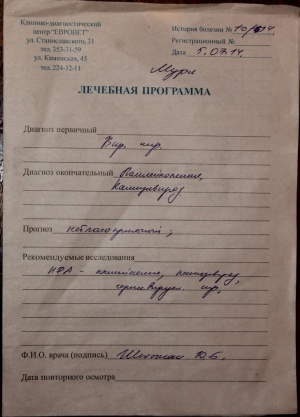 Клинико-диагностический
центр "ЕВРОВЕТ"
ул. Станиславского, 21
тел. 353-31-59
ул. Каменская, 45
тел. 224-12-11
История болезни №
Регистрационный №
Дата 5.07.14.
Мурл
ЛЕЧЕБНАЯ ПРОГРАММА
Диагноз первичный
Вир. инф.
Диагноз окончательный Панлейкопения,
Калицивироз
Прогноз неблагоприятный;
Рекомендуемые исследования
ИФА -
Ф.И.О. врача (подпись)
Дата повторного осмотра